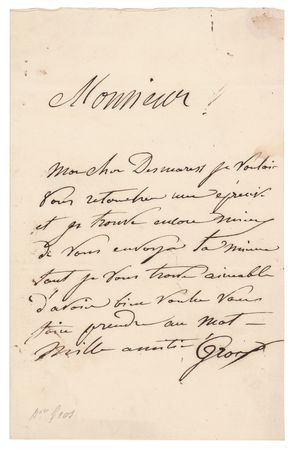 Monsieur
Mon cher Desmarest je voulais
vous retoucher une épreuve
et je trouve encore mieux
de vous envoyer la mienne
tant je vous trouve aimable
d'avoir bien voulu vous
faire prendre au mot
Mille amitiés Gros
Bon Gros